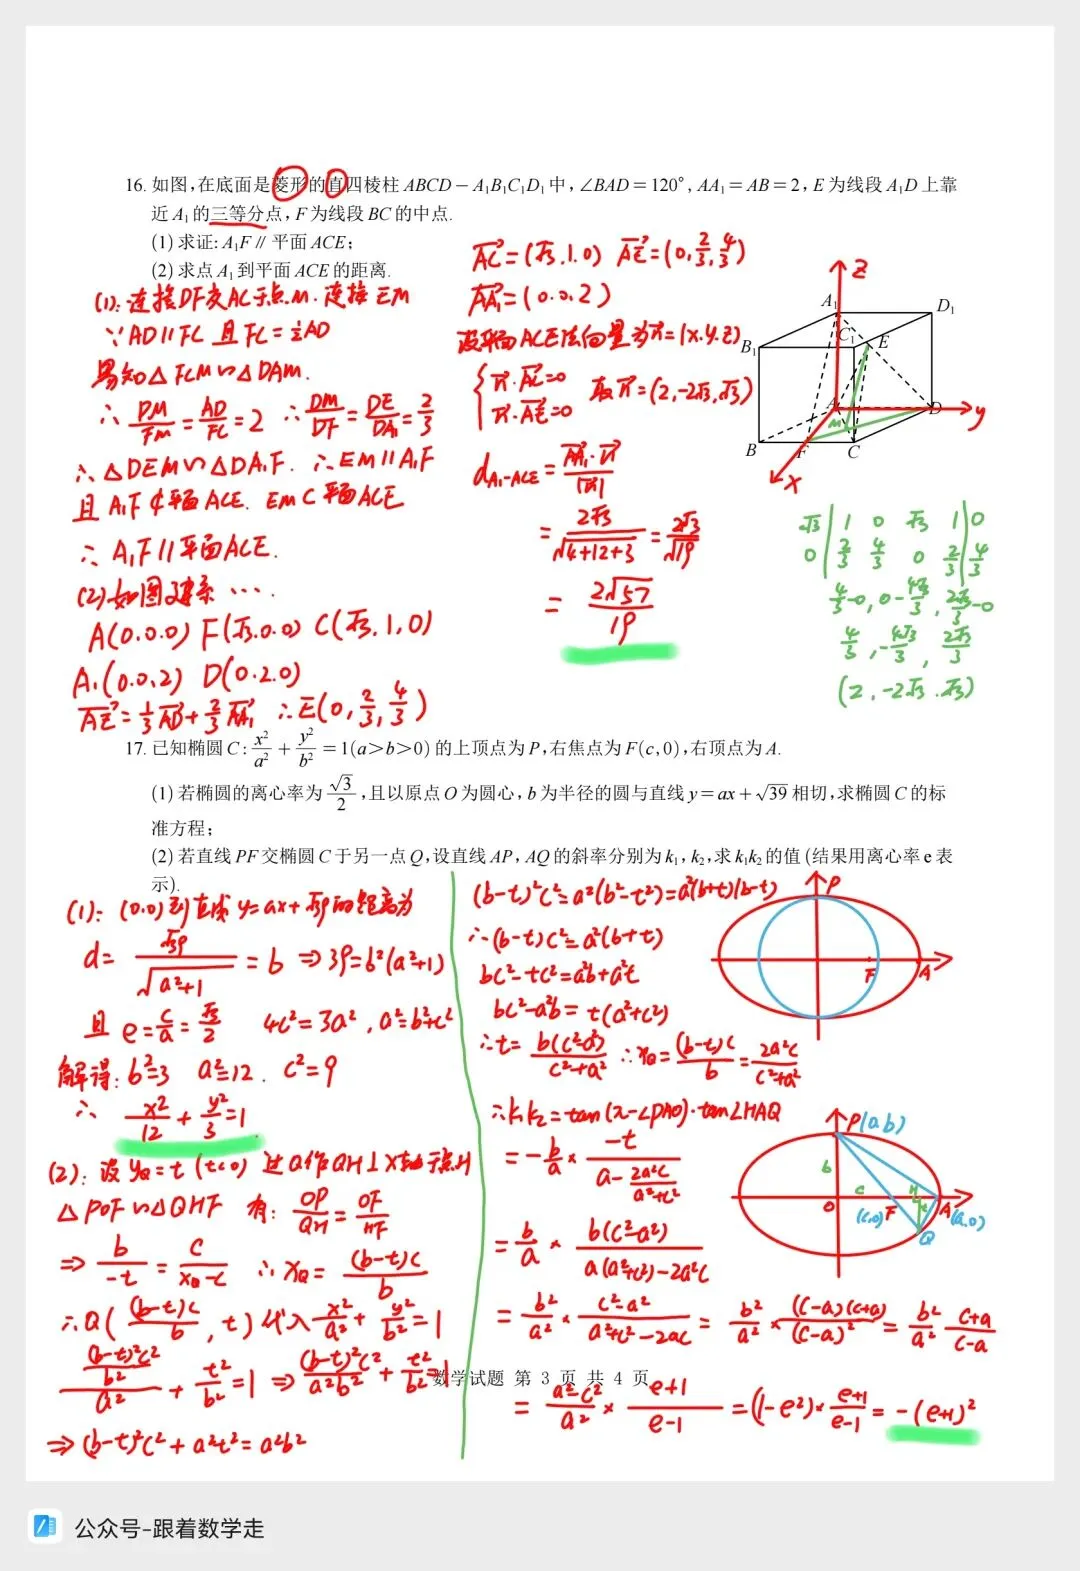 16. 如图,在底面是菱形的直四棱柱 ABCD－A₁B₁C₁D₁中,∠BAD＝120°, AA₁＝AB＝2, E为线段A₁D上靠
近A₁的三等分点,F为线段BC的中点.
(1) 求证: A₁F∥平面ACE;
(2) 求点A₁到平面ACE的距离.
(1): 连接DF交AC于点M. 连接EM
∵AD∥FC 且 FC=½AD
易知△FCM∽△DAM.
∴ DM/FM = AD/FC = 2 ∴ DM/DF = DE/DA₁ = 2/3
∴△DEM∽△DA₁F. ∴EM∥A₁F
且 A₁F⊄平面ACE. EM⊂平面ACE
∴ A₁F∥平面ACE.
(2) 如图建系 ….
A(0.0.0) F(√3.0.0) C(√3, 1, 0)
A₁(0.0.2) D(0.2.0)
AE→ = 1/3 AD→ + 2/3 AA₁→ ∴E(0, 2/3, 4/3)
AC→=(√3.1.0) AE→=(0, 2/3, 4/3)
AA₁→=(0.0.2)
设平面ACE法向量为n→=(x.y.z)
{ n→·AC→=0
n→·AE→=0
取n→=(2,-2√3,√3)
d A₁-ACE = AA₁→·n→/|n→|
= 2√3/√(4+12+3) = 2√3/√19
= 2√57/19
Z
A₁
D₁
B₁
C₁
E
A
D
y
M
B
F
C
x
√3 | 1 0 √3 1 | 0
0 | 2/3 4/3 0 2/3 | 4/3
4/3-0, 0-4√3/3, 2√3/3-0
4/3, -4√3/3, 2√3/3
(2, -2√3. √3)
17. 已知椭圆C: x²/a² + y²/b² = 1(a>b>0) 的上顶点为P,右焦点为F(c,0),右顶点为A.
(1) 若椭圆的离心率为 √3/2 ,且以原点O为圆心,b为半径的圆与直线y＝ax＋√39相切,求椭圆C的标
准方程;
(2) 若直线PF交椭圆C于另一点Q,设直线AP, AQ的斜率分别为k₁, k₂,求k₁k₂的值 (结果用离心率e表
示).
(1): (0.0)到直线 y=ax+√39的距离为
d= √39/√(a²+1) = b ⇒39=b²(a²+1)
且 e=c/a=√3/2 4c²=3a² , a²=b²+c²
解得: b²=3 a²=12. c²=9
∴ x²/12 + y²/3 =1
(2): 设 yQ=t (t<0) 过Q作QH⊥X轴于点H
△POF∽△QHF 有: OP/QH = OF/HF
⇒ b/-t = c/(xQ-c) ∴ xQ= (b-t)c/b
∴Q( (b-t)c/b , t) 代入 x²/a² + y²/b² =1
((b-t)²c²/b²)/a² + t²/b² =1 ⇒ (b-t)²c²/a²b² + t²/b² =1
⇒ (b-t)²c² + a²t² = a²b²
(b-t)²c²=a²(b²-t²)=a²(b+t)(b-t)
∴(b-t)c²=a²(b+t)
bc²-tc²=a²b+a²t
bc²-a²b=t(a²+c²)
∴t= b(c²-a²)/(c²+a²) ∴xQ= (b-t)c/b = 2a²c/(c²+a²)
∴k₁k₂=tan(π-∠PAO)·tan∠HAQ
= -b/a × -t/(a- 2a²c/(a²+c²))
= b/a × b(c²-a²)/(a(a²+c²)-2a²c)
= b²/a² × (c²-a²)/(a²+c²-2ac) = b²/a² × (c-a)(c+a)/(c-a)² = b²/a² · (c+a)/(c-a)
= (a²-c²)/a² × (e+1)/(e-1) =(1-e²)× (e+1)/(e-1) = -(e+1)²
P
F
A
P(a b)
b
c
H
O
(c,0)
F
A
(a.0)
t
Q
数学试题 第 3 页 共 4 页
公众号-跟着数学走